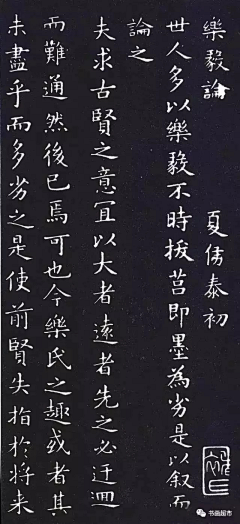 樂毅論
夏侯泰初
世人多以樂毅不時拔莒即墨為劣是以叙而
論之
夫求古賢之意宜以大者遠者先之必迂迴
而難通然後已焉可也今樂氏之趣或者其
未盡乎而多劣之是使前賢失指於将来
书画超市